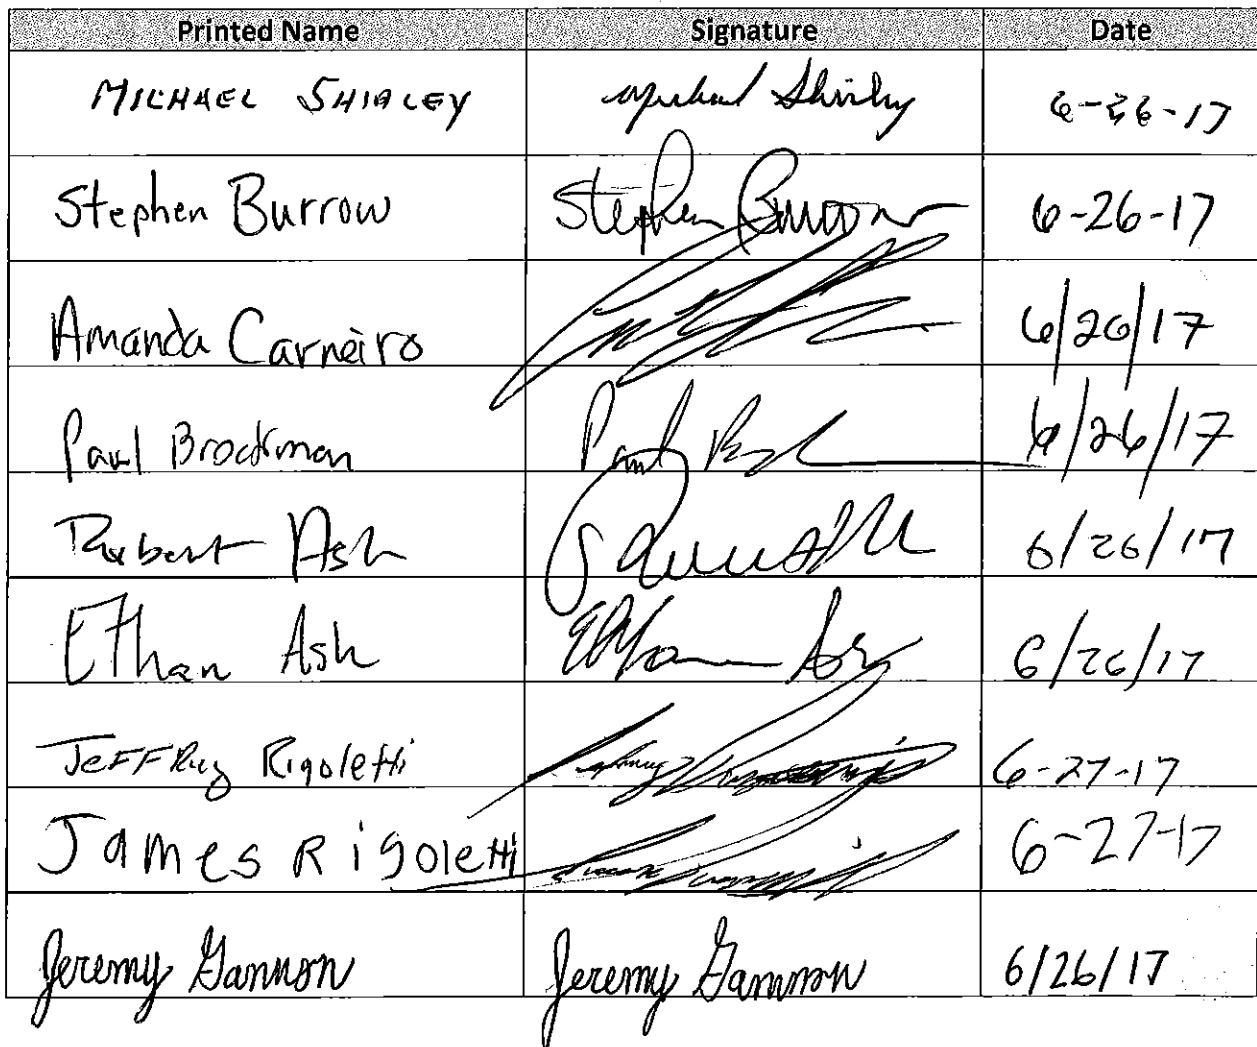 Printed Name Signature Date
MICHAEL SHIRLEY Michael Shirley 6-26-17
Stephen Burrow Stephen Burrow 6-26-17
Amanda Carneiro 6/26/17
Paul Brockman Paul 6/26/17
Robert Ash 6/26/17
Ethan Ash Ethan Ash 6/26/17
Jeffrey Rigoletti 6-27-17
James Rigoletti 6-27-17
Jeremy Gannon Jeremy Gannon 6/26/17